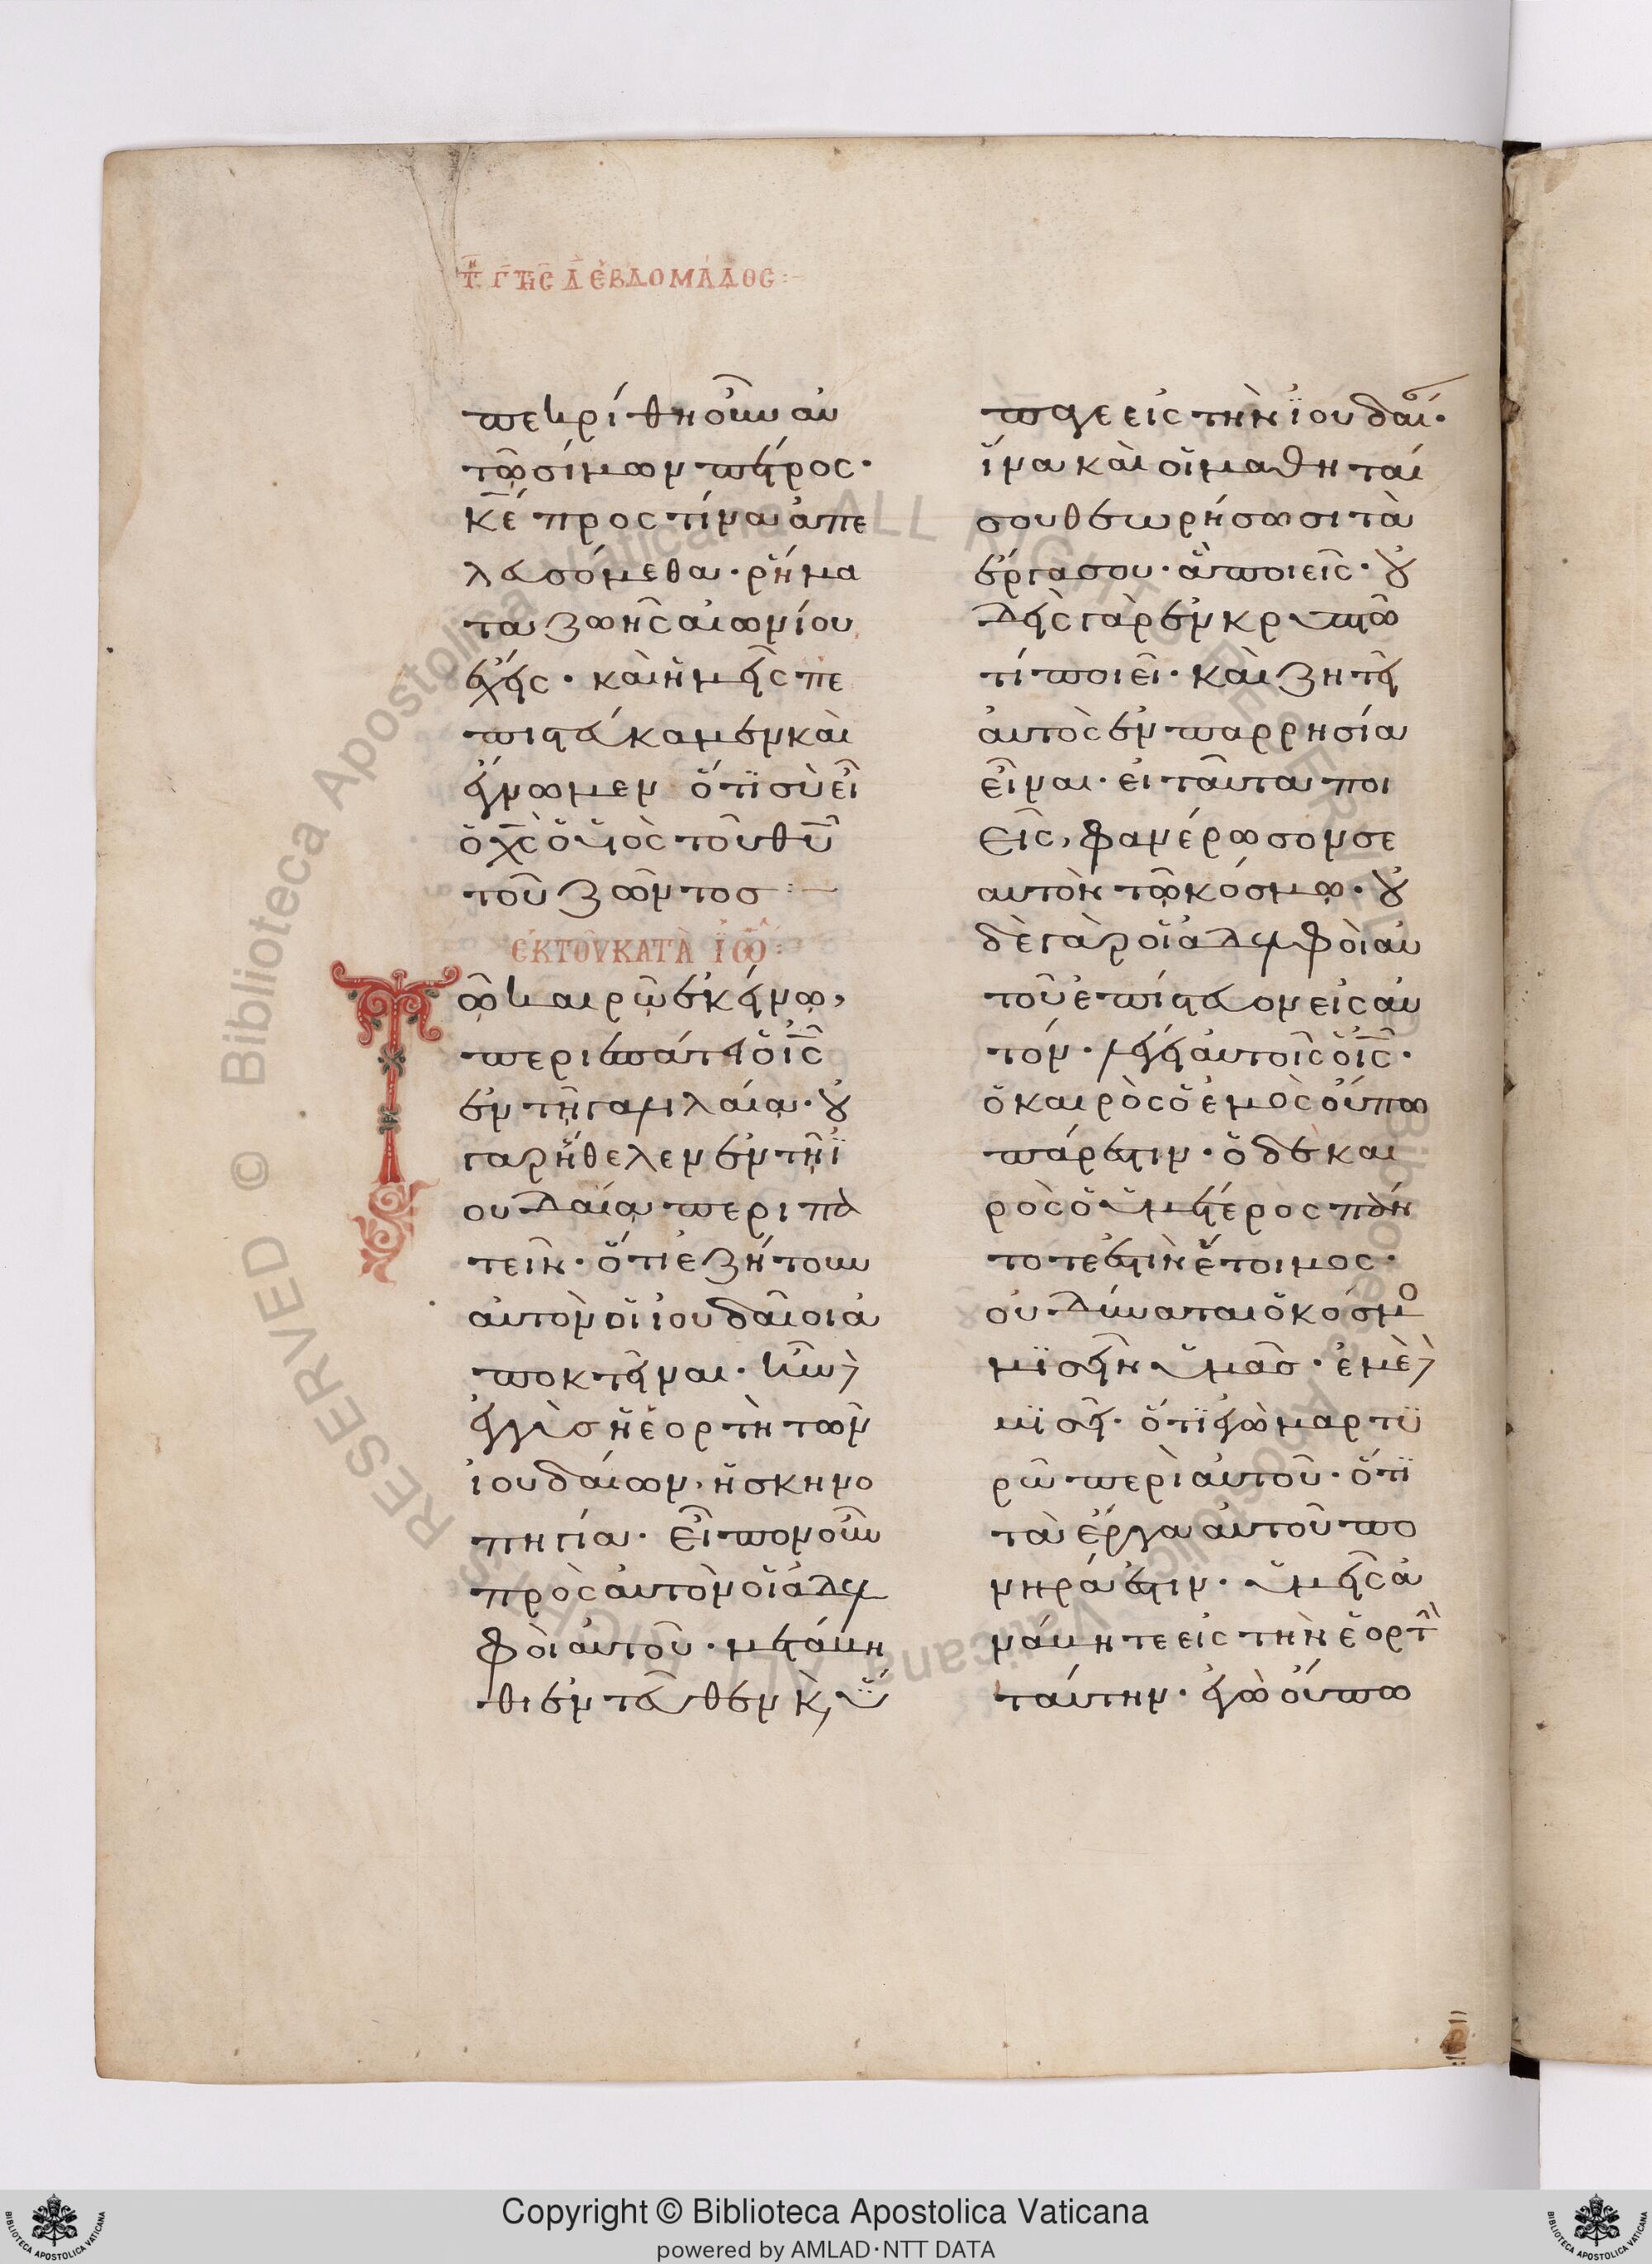 τῇ γ τῆς δ ἑβδομάδος:—
πεκρίθη οὖν αὐ
τῶ σίμων πέτρος·
κε πρὸς τίνα ἀπε
λευσόμεθα· ῥήμα
τα ζωῆς αἰωνίου
ἔχεις· καὶ ἡμεῖς πε
πιστεύκαμεν καὶ
ἐγνωμεν ὅτϊ σὺ εἶ
ὁ χς ὁ υἱὸς τοῦ θυ
τοῦ ζῶντοσ:—
ἐκ τοῦ κατὰ ϊω:
Τῶ καιρῶ ἐκείνω,
περιεπάτει ὁ ις
ἐν τῆ γαλιλαία· οὐ
γαρ ἤθελεν ἐν τῆ ϊ
ουδαία περιπα
τεῖν· ὅτι ἐζήτουν
αὐτὸν οἱ ἰουδαῖοι ἀ
ποκτεῖναι· ἦν δὲ
ἐγγὺσ ἡ ἑορτὴ τῶν
ἰουδαίων, ἡ σκηνο
πηγία· εἶπον οὖν
πρὸς αὐτὸν οἱ ἀδελ
φοὶ αὐτοῦ· μετάβη
θι ἐντεῦθεν κ, ὕ
παγε εἰς τὴν ϊουδαί·
ἵνα καὶ οἱ μαθηταί
σου θεωρήσωσι τὰ
ἔργα σου· ἃ ποιεῖς· οὐ
δεὶς γὰρ ἐν κρυπτῶ
τί ποιεῖ· καὶ ζητεῖ
αὐτὸς ἐν παρρησία
εἶναι· εἰ ταῦτα ποι
εῖς, φανέρωσον σε
αυτὸν τῶ κόσμω· οὐ
δὲ γὰρ οἱ ἀδελφοὶ αὐ
τοῦ ἐπίστευον εἰς αὐ
τόν· λέγει αὐτοῖς ὁ ις·
ὁ καιρὸς ὁ ἐμὸς οὔπω
πάρεστιν· ὁ δὲ και
ρὸς ὁ ὑμέτερος πάν
τοτε ἐστὶν ἕτοιμος·
οὐ δύναται ὁ κόσμο
μϊσεῖν ὑμᾶσ· ἐμὲ δὲ
μϊσεῖ· ὅτϊ ἐγὼ μαρτϋ
ρῶ περὶ αὐτοῦ· ὅτϊ
τὰ ἔργα αὐτοῦ πο
νηρά ἐστιν· ὑμεῖς ἀ
νάβητε εἰς τὴν ἑορτὴ
ταύτην· ἐγὼ οὔπω
Copyright © Biblioteca Apostolica Vaticana
powered by AMLAD·NTT DATA